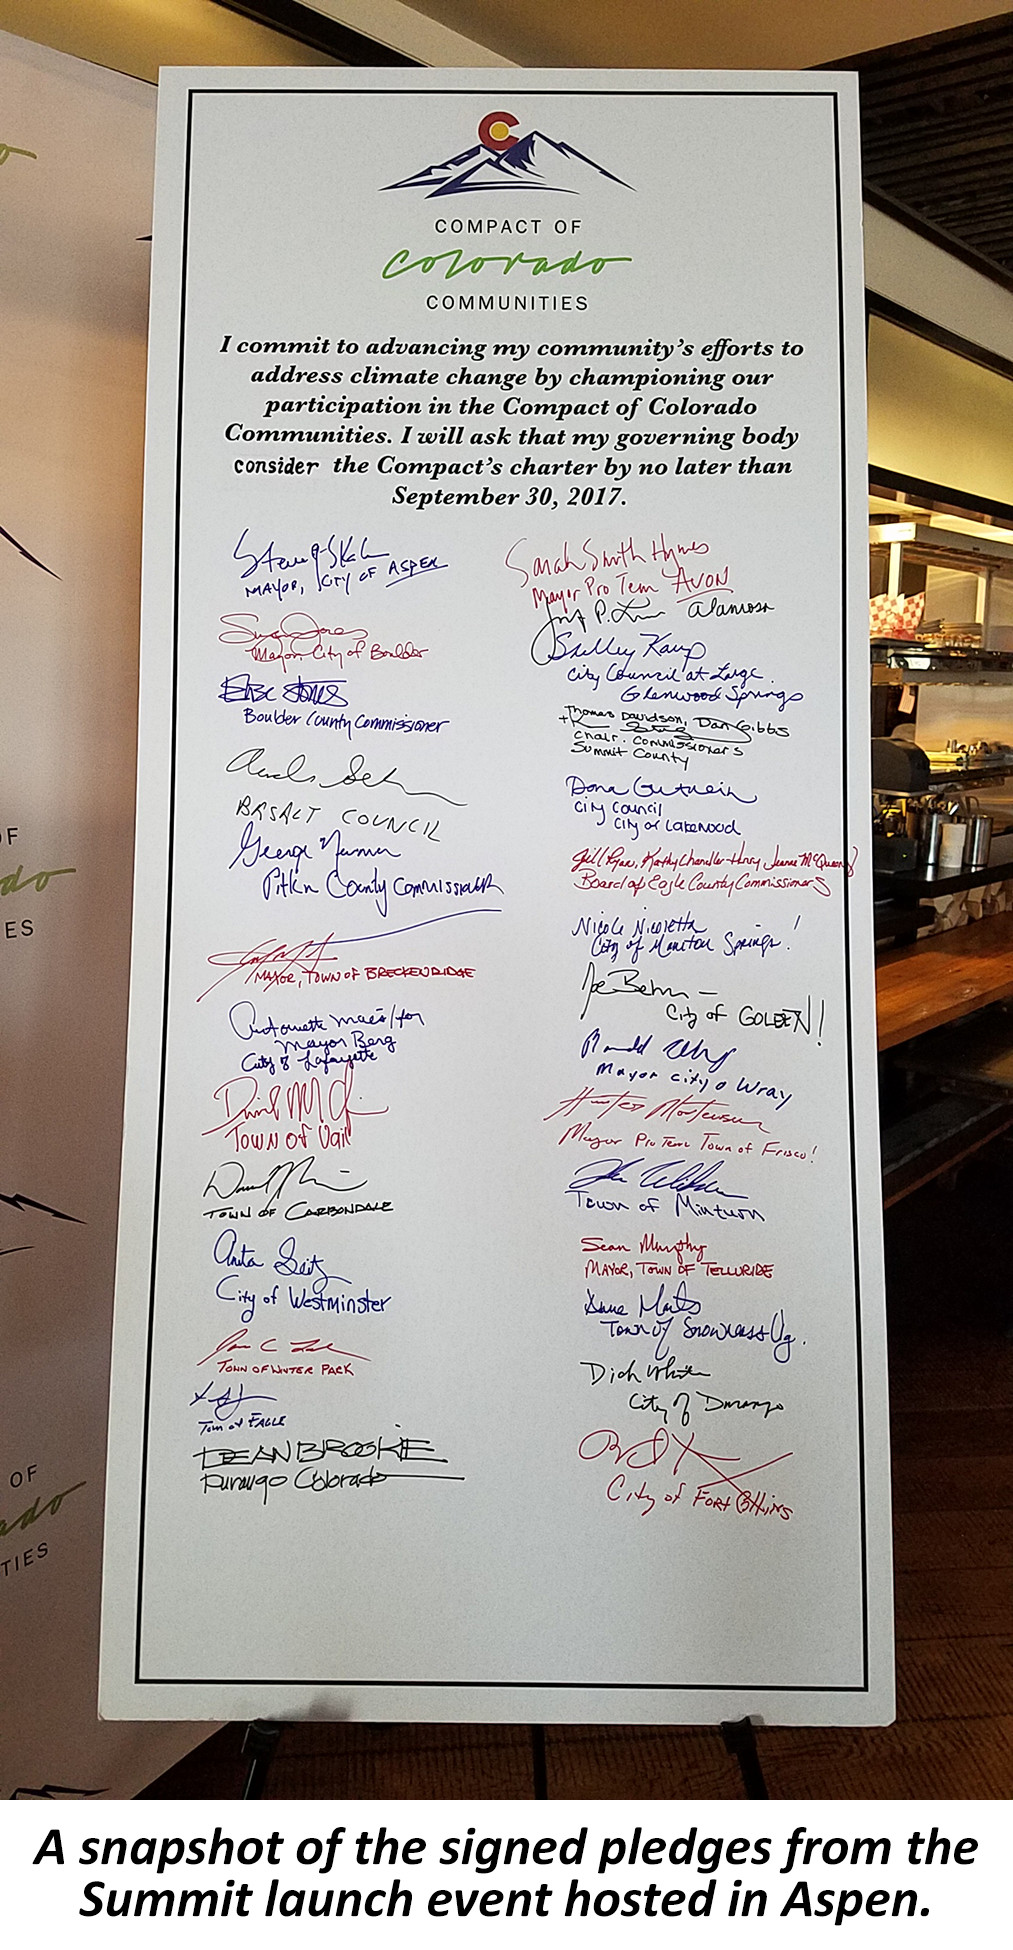 COMPACT OF
Colorado
COMMUNITIES
I commit to advancing my community's efforts to
address climate change by championing our
participation in the Compact of Colorado
Communities. I will ask that my governing body
consider the Compact's charter by no later than
September 30, 2017.
MAYOR, CITY OF ASPEN
Mayor City of Boulder
Boulder County Commissioner
BASALT COUNCIL
George Newman
Pitkin County Commissioner
MAYOR, TOWN OF BRECKENRIDGE
Antoinette Maes/for
Mayor Berg
City of Lafayette
TOWN OF Vail
TOWN OF CARBONDALE
Anita Seitz
City of Westminster
TOWN OF WINTER PARK
Town of EAGLE
DEAN BROOKIE
Durango Colorado
Sarah Smith Hymes
Mayor Pro Tem AVON
Alamosa
Shelley Kaup
City Council at Large.
Glenwood Springs
Thomas Davidson, Dan Gibbs
+ Karn Stieg
Chair. Commissioners
Summit County
Dana Gutwein
City Council
City of Lakewood
Jill Ryan, Kathy Chandler-Henry, Jeanne McQueeney
Board of Eagle County Commissioners
Nicole Nicoletta
City of Manitou Springs!
Joe Behm –
City of GOLDEN!
Mayor City o Wray
Hunter Mortensen
Mayor Pro Tem Town of Frisco!
Town of Minturn
Sean Murphy
MAYOR, TOWN OF TELLURIDE
Town of Snowmass Vg.
Dick White
City of Durango
City of Fort Collins
OF
do
ES
OF
ado
TIES
A snapshot of the signed pledges from the
Summit launch event hosted in Aspen.